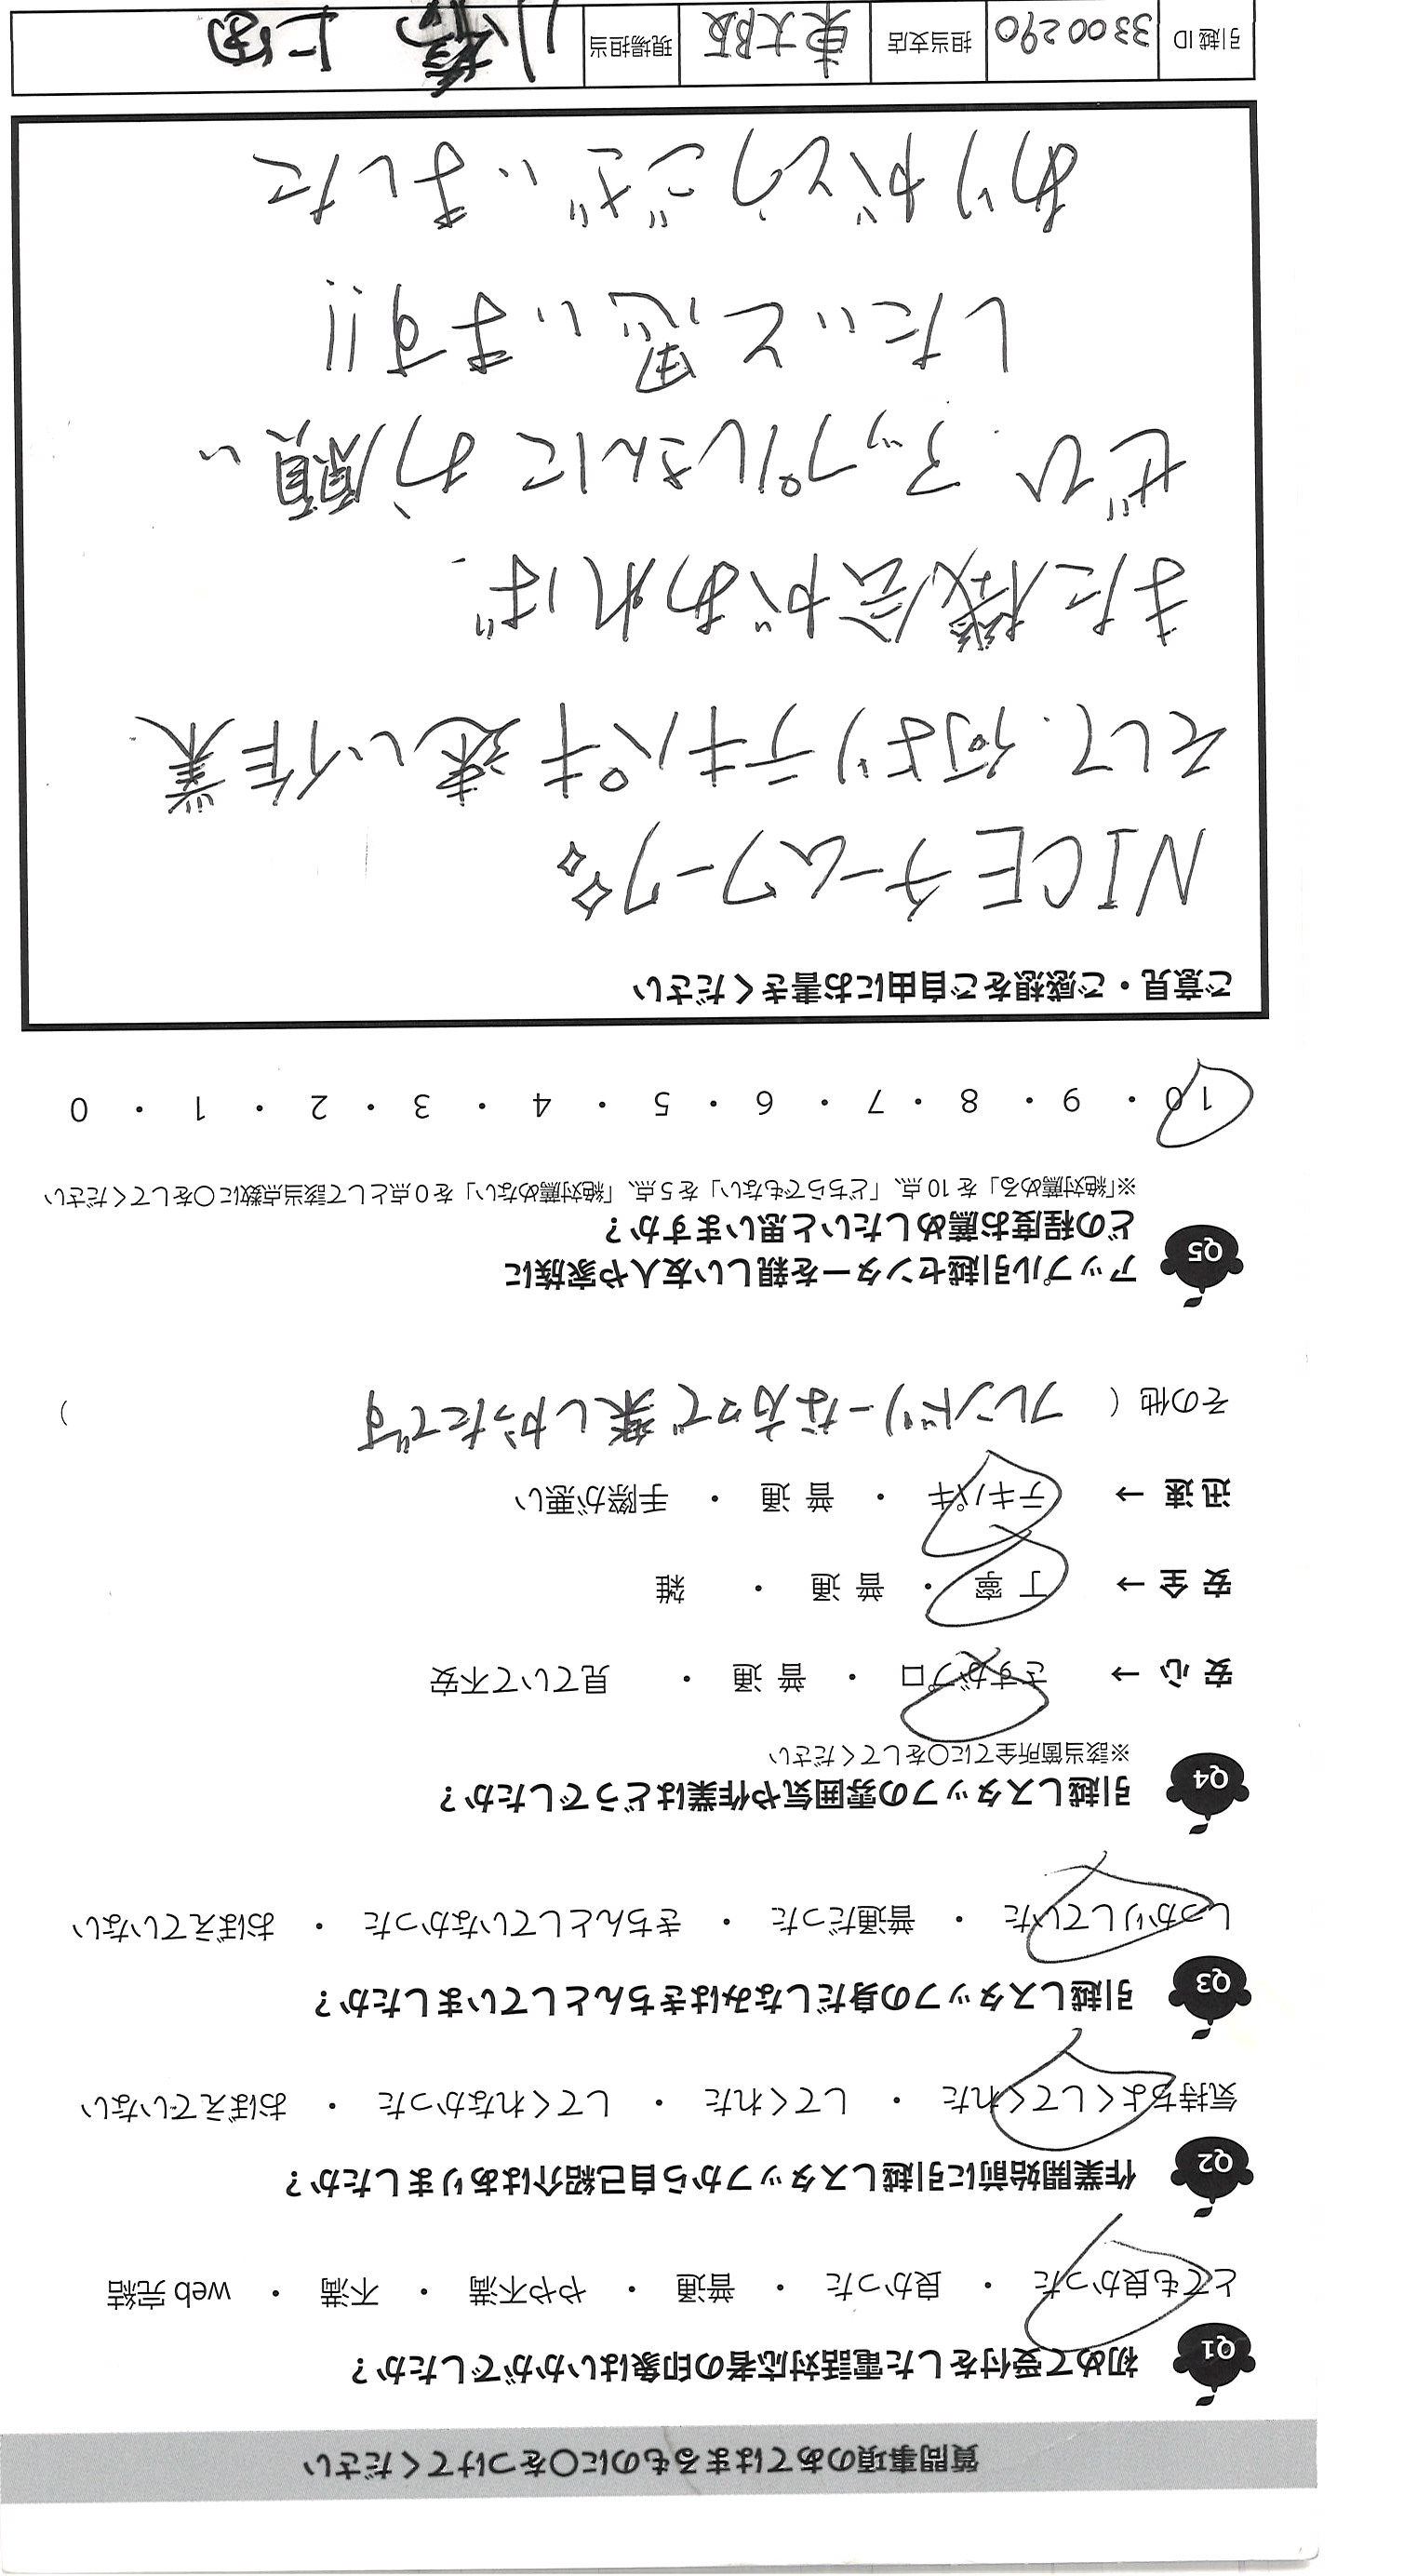 質問事項のあてはまるものに○をつけてください
Q1 初めて受付をした電話対応者の印象はいかがでしたか？
とても良かった ・ 良かった ・ 普通 ・ やや不満 ・ 不満 ・ web 完結
Q2 作業開始前に引越しスタッフから自己紹介はありましたか？
気持ちよくしてくれた ・ してくれた ・ してくれなかった ・ おぼえていない
Q3 引越しスタッフの身だしなみはきちんとしていましたか？
しっかりしていた ・ 普通だった ・ きちんとしていなかった ・ おぼえていない
Q4 引越しスタッフの雰囲気や作業はどうでしたか？
※該当箇所全てに○をしてください
安心 → さすがプロ ・ 普通 ・ 見ていて不安
安全 → 丁寧 ・ 普通 ・ 雑
迅速 → テキパキ ・ 普通 ・ 手際が悪い
その他 ( フレンドリーな方々で楽しかったです )
Q5 アップル引越センターを親しい友人や家族に
どの程度お薦めしたいと思いますか？
※「絶対薦める」を 10 点、「どちらでもない」を 5 点、「絶対薦めない」を 0 点として該当点数に○をしてください
10 ・ 9 ・ 8 ・ 7 ・ 6 ・ 5 ・ 4 ・ 3 ・ 2 ・ 1 ・ 0
ご意見・ご感想をご自由にお書きください
NICEチームワーク
そして、何よりテキパキ速い作業
また機会があれば、
ぜひ、アップルさんにお願い
したいと思います!!
ありがとうございました
引越 ID 3300290 担当支店 東大阪 現場担当 小橋 上田